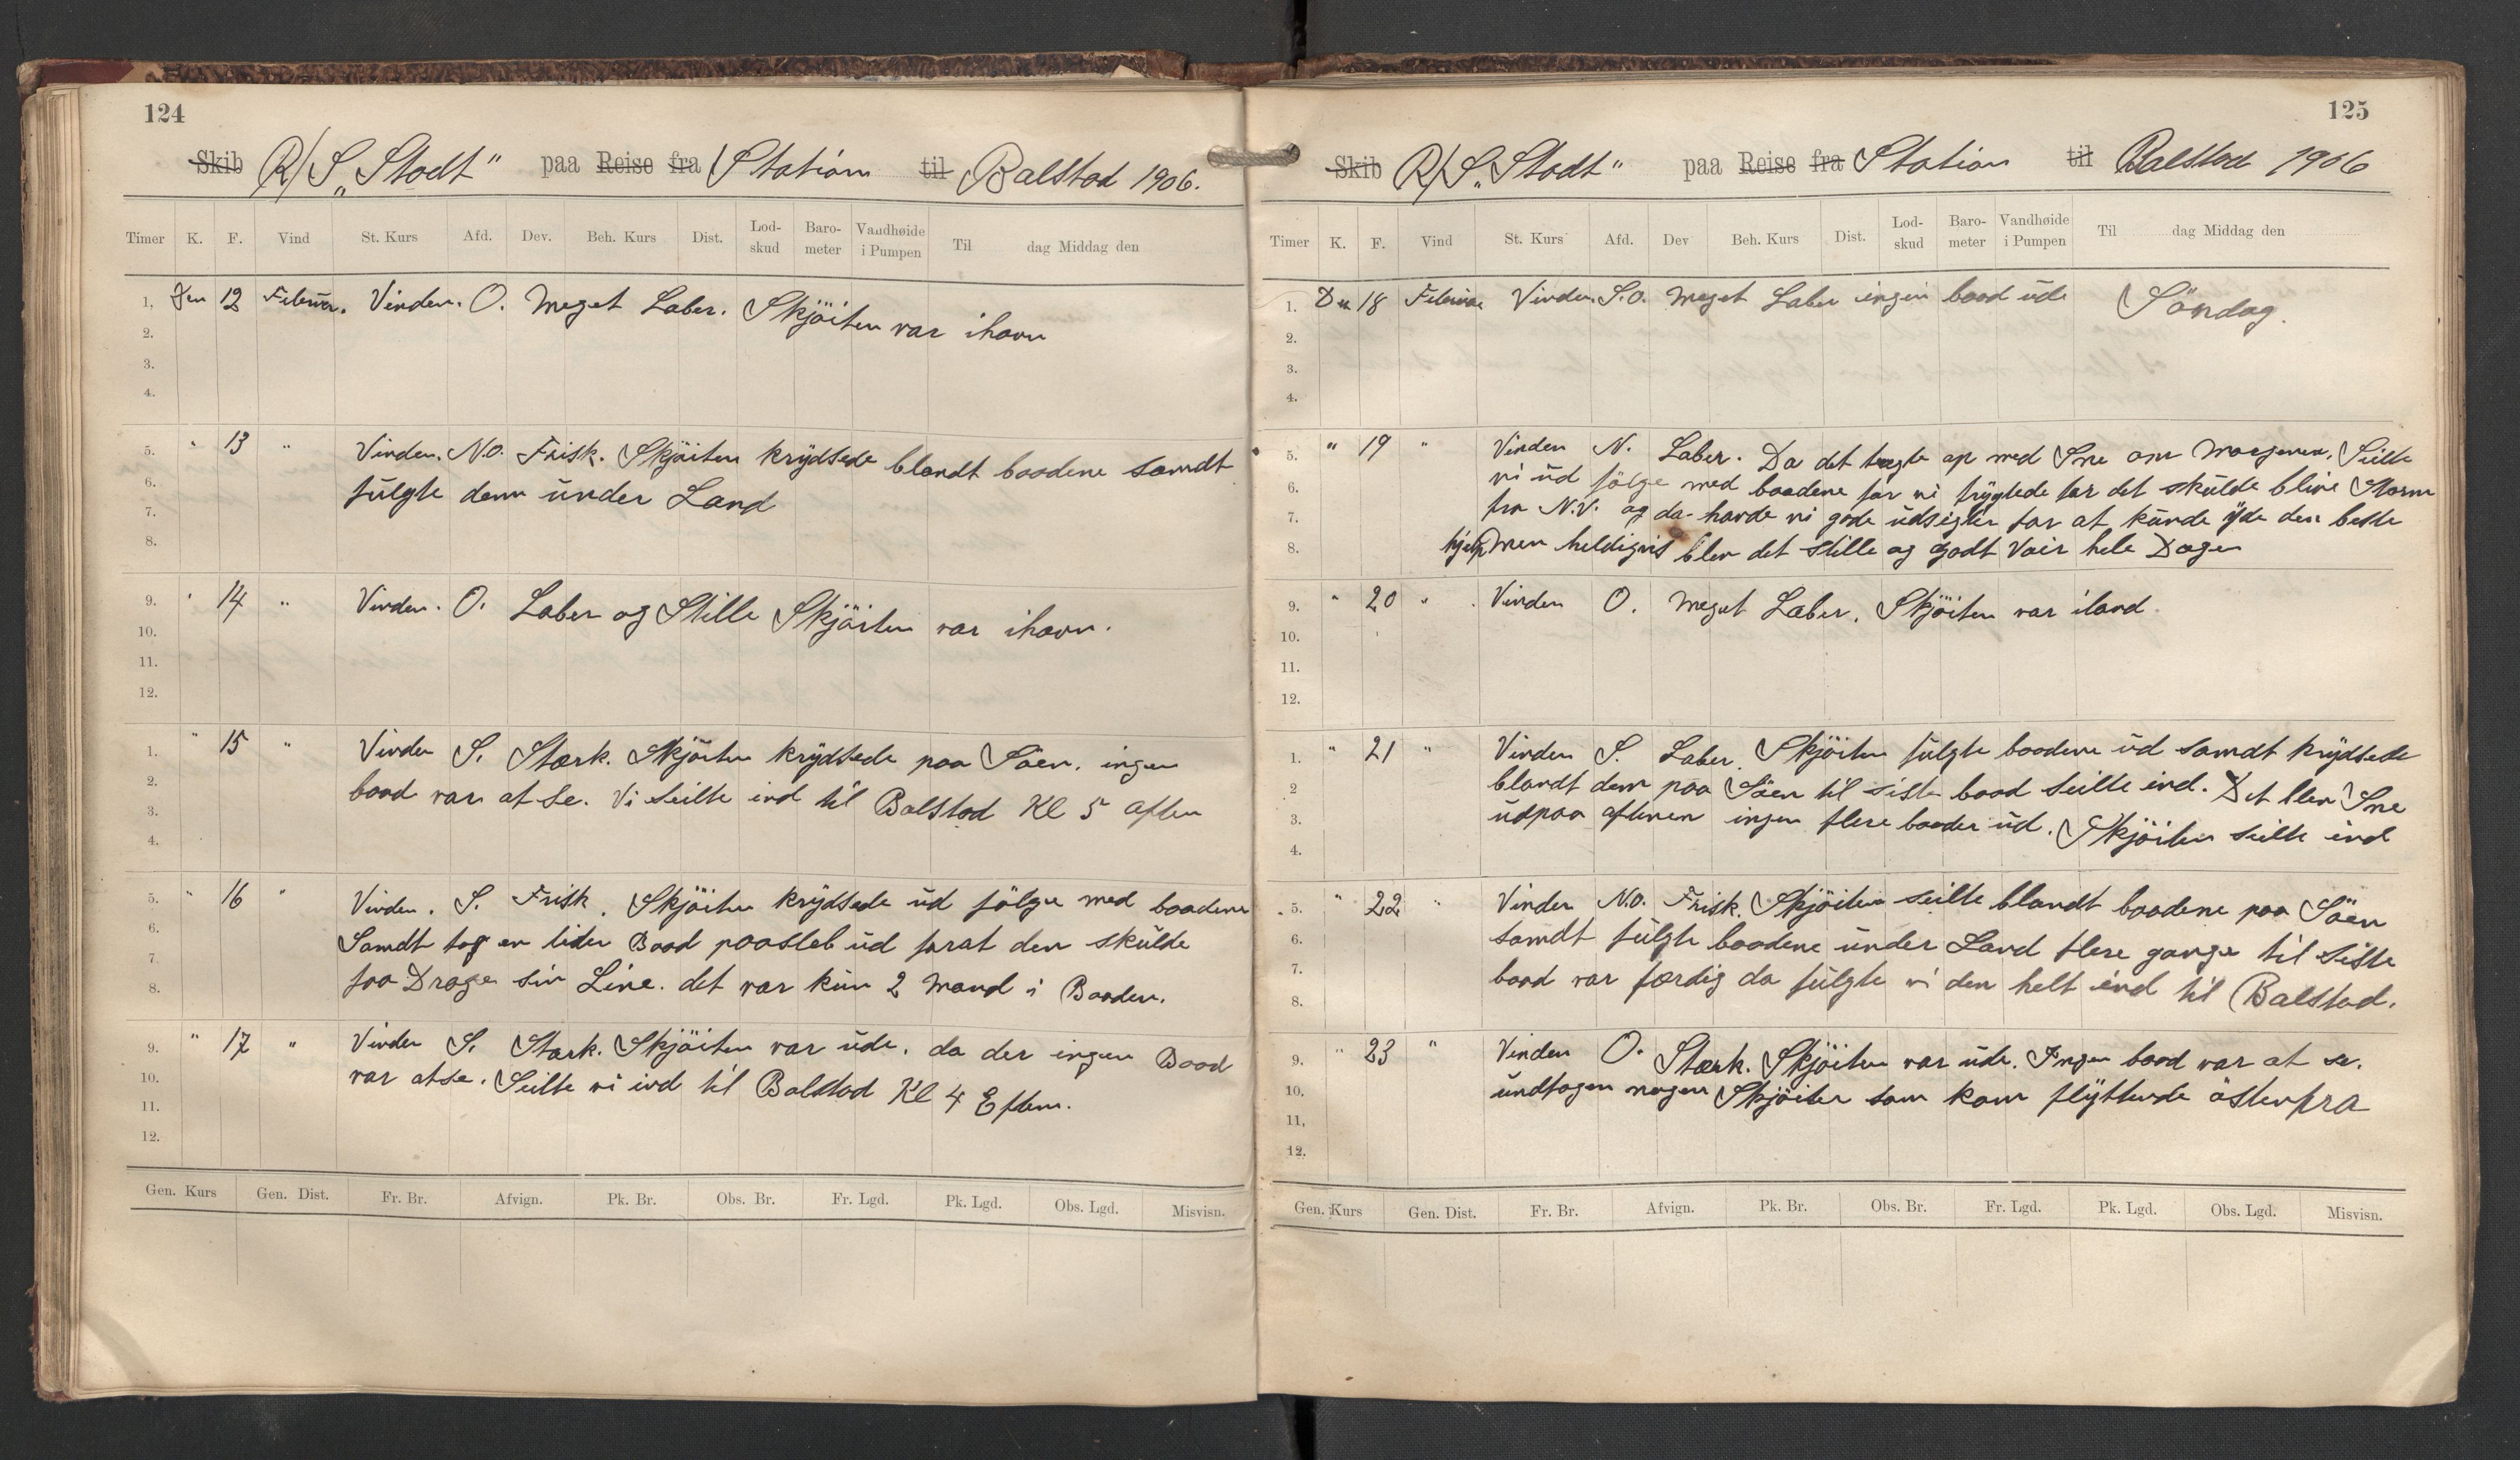 124
Skib R/S „Stadt" paa Reise fra Station til Balstad 1906.
Timer K. F. Vind St. Kurs Afd. Dev. Beh. Kurs Dist. Lod-skud Baro-meter Vandhøide i Pumpen Til dag Middag den
1. Den 12 Februar. Vinden. O. Meget Laber. Skjöiten var ihavn
2.
3.
4.
5. " 13 " Vinden. N.O. Frisk. Skjöiten krydsede blandt baadene samdt
6. fulgte dem under Land
7.
8.
9. " 14 " Vinden. O. Laber og Stille Skjöiten var ihavn.
10.
11.
12.
1. " 15 " Vinden S. Stærk. Skjöiten krydsede paa Söen. ingen
2. baad var at se. Vi seilte ind til Balstad Kl 5 aften
3.
4.
5. " 16 " Vinden. S. Frisk. Skjöiten krydsede ud fölge med baadene
6. Samdt tog en liden Baad paasleb ud forat den skulde
7. faa Drage sin Line. det var kun 2 Mand i Baaden.
8.
9. " 17 " Vinden S. Stærk. Skjöiten var ude. da der ingen Baad
10. var atse. Seilte vi ind til Balstad Kl 4 Eftem.
11.
12.
Gen. Kurs Gen. Dist. Fr. Br. Afvign. Pk. Br. Obs. Br. Fr. Lgd. Pk. Lgd. Obs. Lgd. Misvisn.
125
Skib R/S „Stadt" paa Reise fra Station til Balstad 1906
Timer K. F. Vind St. Kurs Afd. Dev Beh. Kurs Dist. Lod-skud Baro-meter Vandhøide i Pumpen Til dag Middag den
1. Den 18 Februar Vinden. S.O. Meget Laber ingen baad ude Söndag.
2.
3.
4.
5. " 19 " Vinden N. Laber. Da det tagte op med Sne om Morgenen. Seilte
6. vi ud fölge med baadene for vi frygtede for det skulde blive Storm
7. fra N.V. og da havde vi gode udsigter for at kunde yde den beste
8. hjelp men heldigvis blev det stille og godt Vair hele Dagen
9. " 20 " Vinden O. Meget Laber. Skjöiten var iland
10.
11.
12.
1. " 21 " Vinden S. Laber. Skjöiten fulgte baadene ud samdt krydsede
2 blandt dem paa Söen til siste baad seilte ind. Det blev Sne
3. udpaa aftenen ingen flere baader ud. Skjöiten seilte ind
4.
5. " 22 " Vinden N.O. Frisk. Skjöiten seilte blandt baadene paa Söen
6. samdt fulgte baadene under Land flere gange til siste
7. baad var færdig da fulgte vi den helt ind til Balstad.
8.
9. " 23 " Vinden O. Stærk. Skjöiten var ude. Ingen baad var at se.
10. undtagen nogen Skjöiter som kom flyttende östenfra
11.
12.
Gen. Kurs Gen. Dist. Fr. Br. Afvign. Pk. Br. Obs. Br. Fr. Lgd. Pk. Lgd. Obs. Lgd. Misvisn.